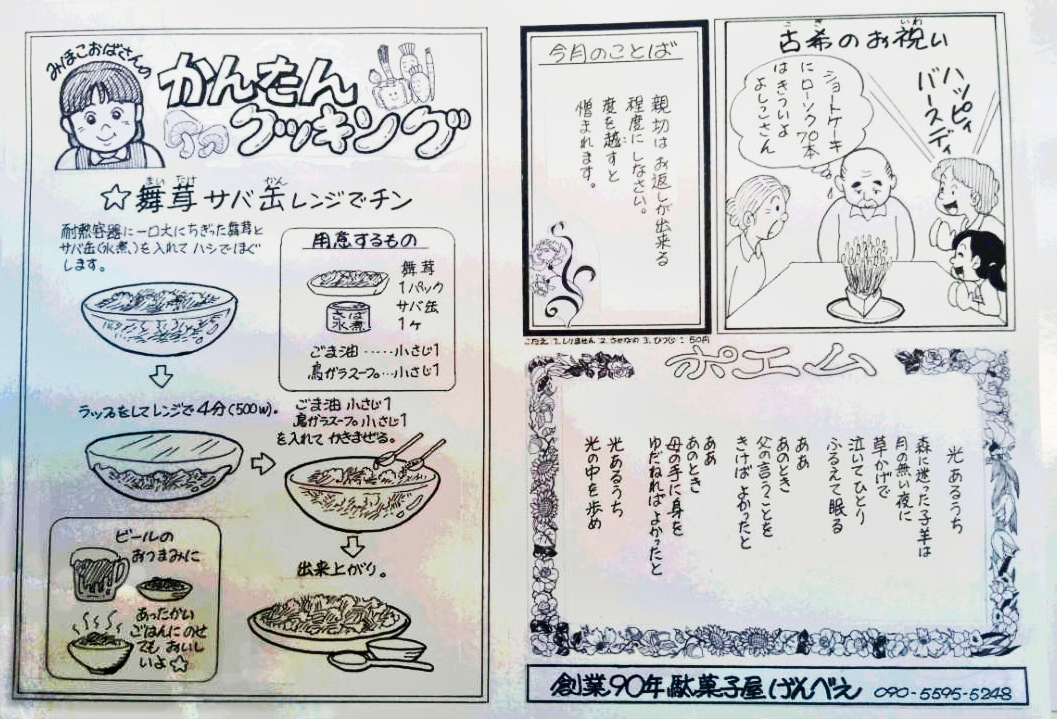 みほこおばさんの
かんたん
クッキング
☆舞茸サバ缶レンジでチン
まいたけ
かん
耐熱容器に一口大にちぎった舞茸と
サバ缶(水煮)を入れてハシでほぐ
します。
用意するもの
舞茸
1パック
サバ缶
1ヶ
さば
水煮
ごま油……小さじ1
鳥ガラスープ…小さじ1
ラップをしてレンジで4分(500W)。
ごま油 小さじ1
鳥ガラスープ小さじ1
を入れてかきまぜる。
出来上がり。
ビールの
おつまみに
あったかい
ごはんにのせ
てもおいし
いよ☆
今月のことば
親切はお返しが出来る
程度にしなさい。
度を越すと
憎まれます。
古希のお祝い
こき
いわ
ハッピィ
バースディ
ショートケーキ
にローソク70本
はきついよ
よしこさん
こたえ 1.しりません 2.さかなの 3.ひつじ:50円
ポエム
光あるうち
森に迷った子羊は
月の無い夜に
草かげで
泣いてひとり
ふるえて眠る
ああ
あのとき
父の言うことを
きけばよかったと
ああ
あのとき
母の手に身を
ゆだねればよかったと
光あるうち
光の中を歩め
創業90年駄菓子屋げんべえ 090-5595-5248